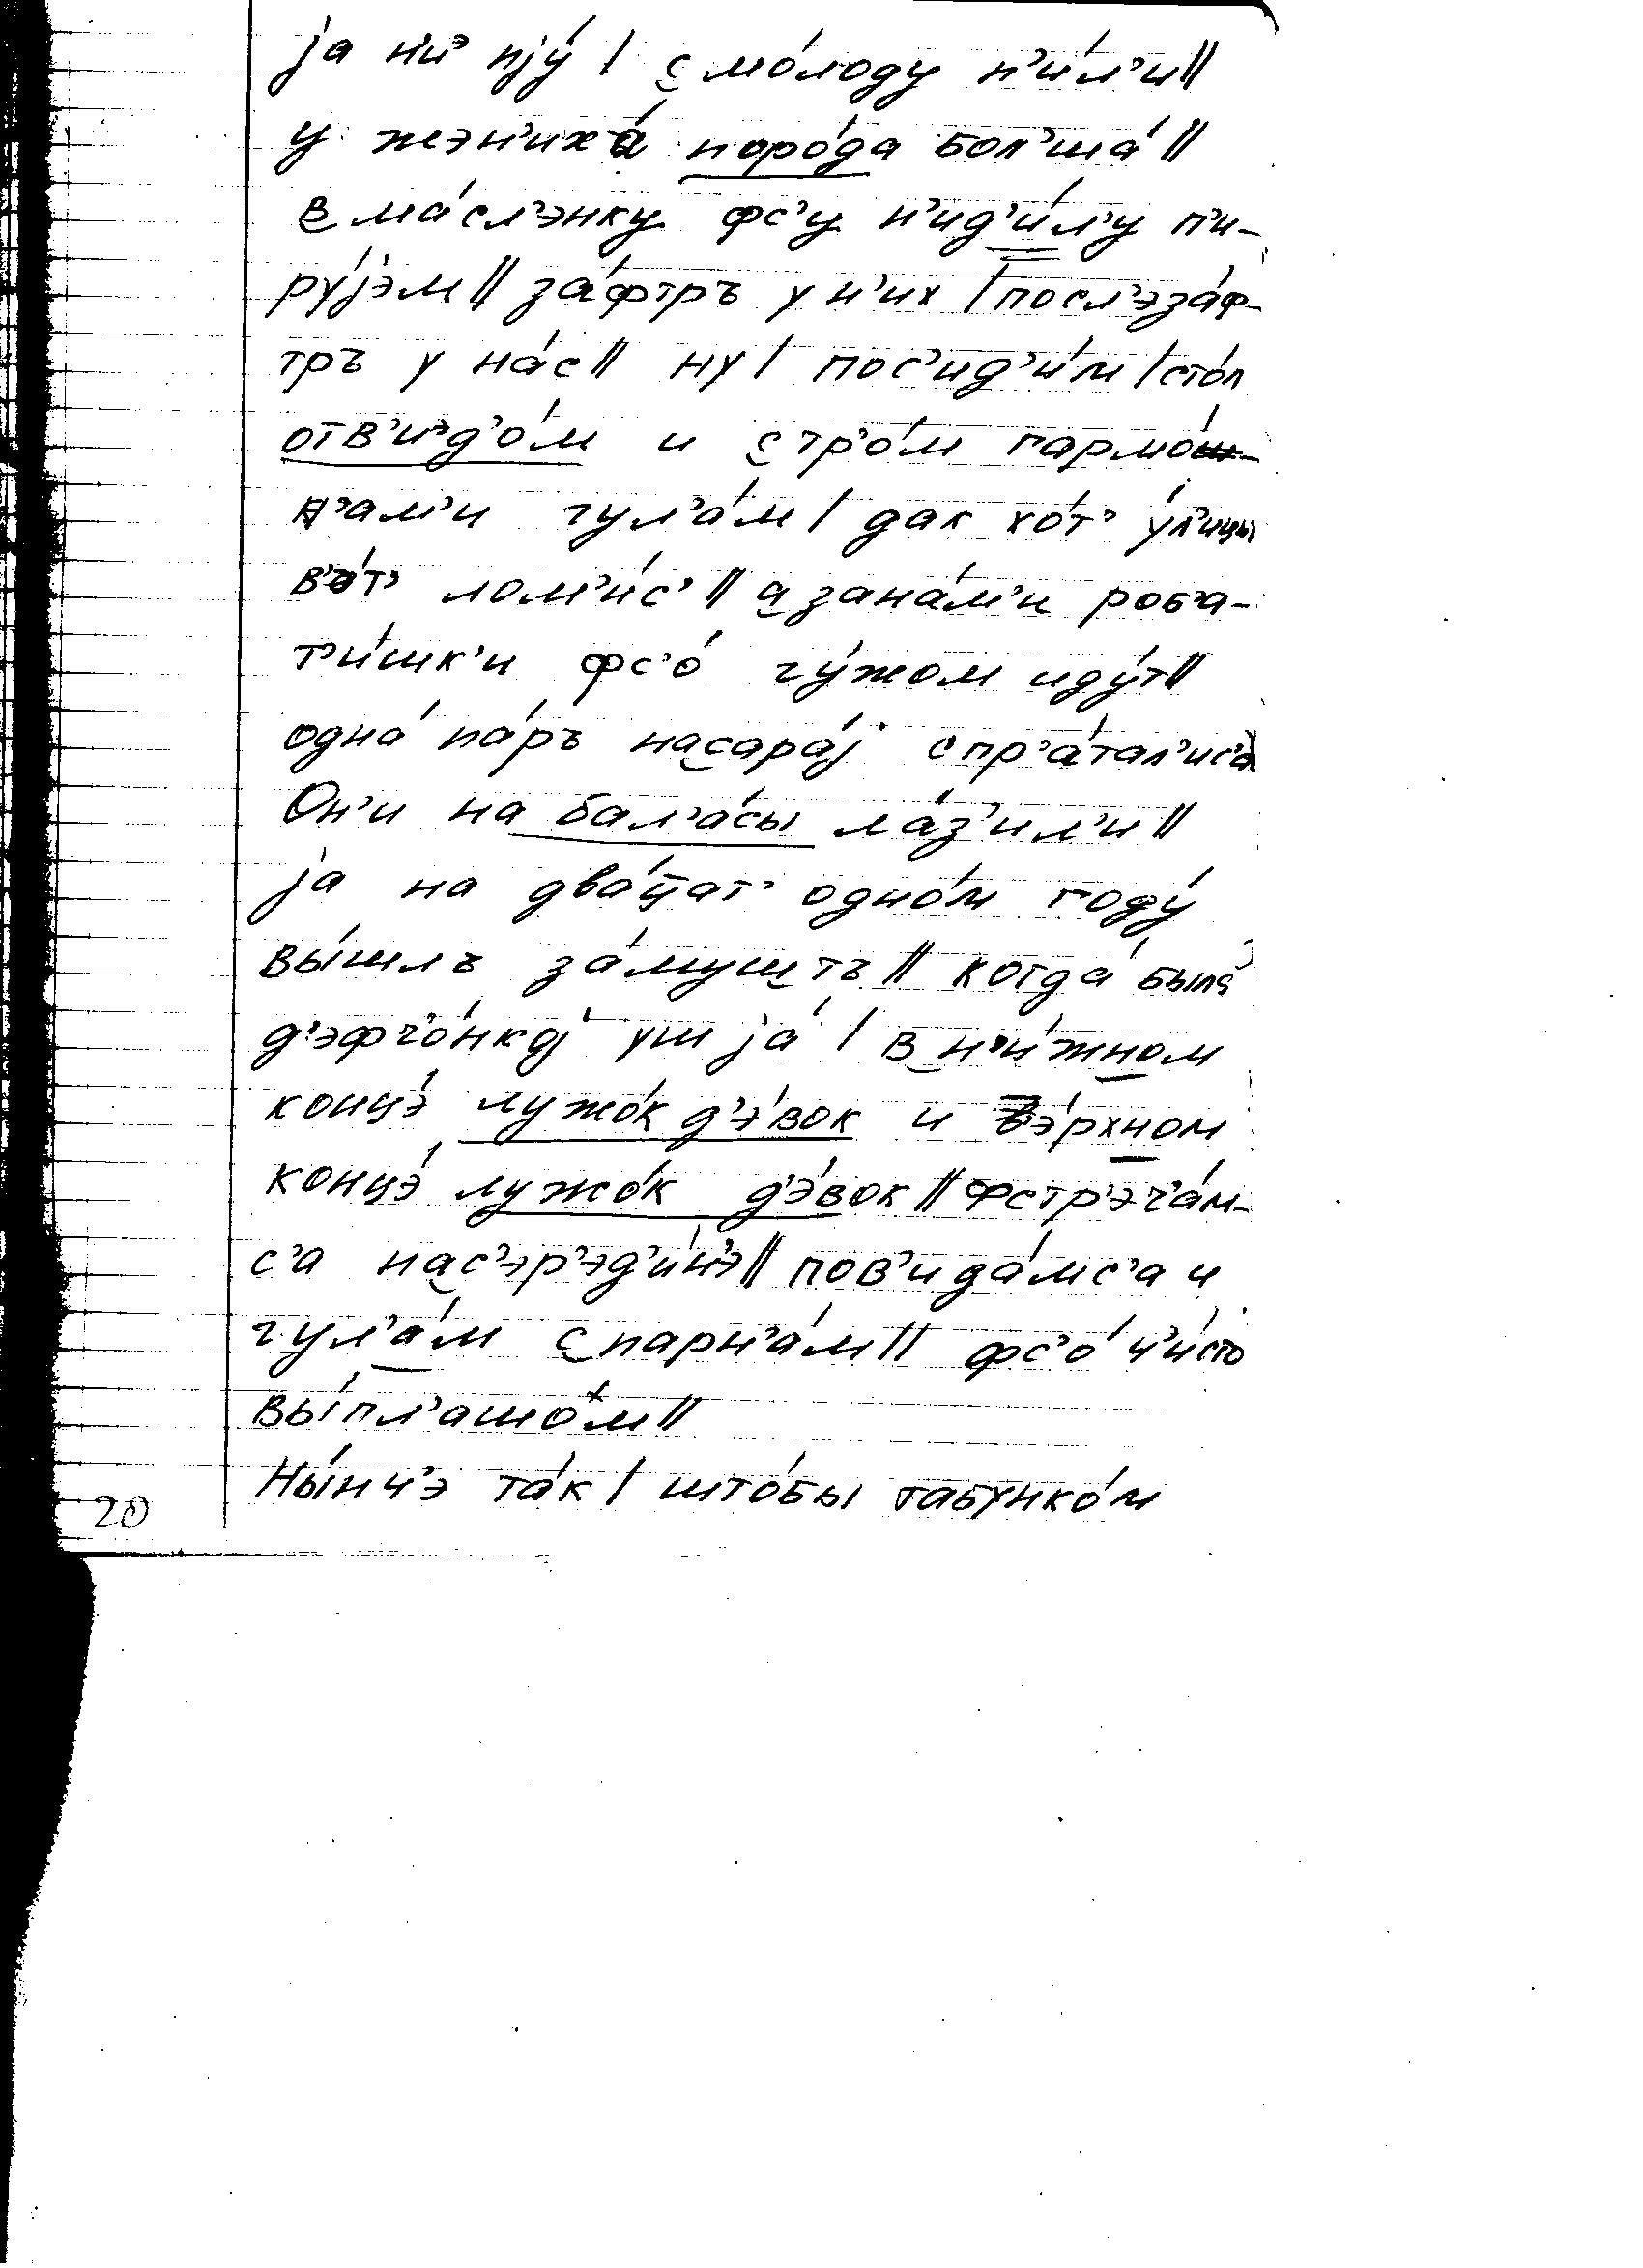 jа н'иэ пjу́ | с мо́лоду п'и́л'и ||
у жэн'иха́ поро́да бол'ша́ ||
в ма́сл'энку фс'у н'ид'и́л'у п'и-
ру́jэм || за́фтръ у н'их | посл'эза́ф-
тръ у на́с || ну | пос'ид'и́м | сто́л
отв'иэд'о́м и с тр'о́м гармо́ш-
к'ам'и гул'а́м | дак хо́т' у́л'ицы
в'а́т' лом'и́с' || а занáм'и роб'а-
т'и́шк'и фс'о́ гу́жом иду́т ||
одна́ па́ръ насара́j спр'а́тал'ис'а
Он'и на бал'а́сы ла́з'ил'и ||
jа на два́цат' одно́м году́
вы́шлъ за́муштъ || когда́ была́
д'эфч'о́нкоj уш jа́ | в н'и́жном
концэ́ лужо́к д'э́вок и в'э́рхном
концэ́ лужо́к д'э́вок || фстр'эч'а́м-
с'а нас'эр'эд'и́н'э || пов'ида́мс'а и
гул'а́м с парн'а́м || фс'о́ ч'и́сто
вы́пл'ашом ||
Ны́нч'э та́к | што́бы табунко́м
20